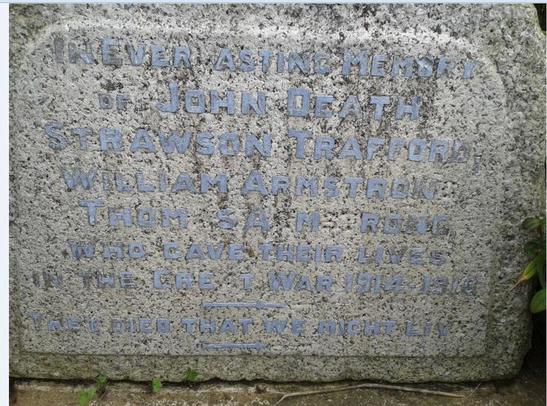 IN EVER ASTING MEMORY
OF JOHN DEATH
STRAWSON TRAFFORD,
WILLIAM ARMSTRON
THOM S A M RONG
WHO GAVE THEIR LIVES
IN THE GRE T WAR 1914-1918
THEY DIED THAT WE MIGHT LIV